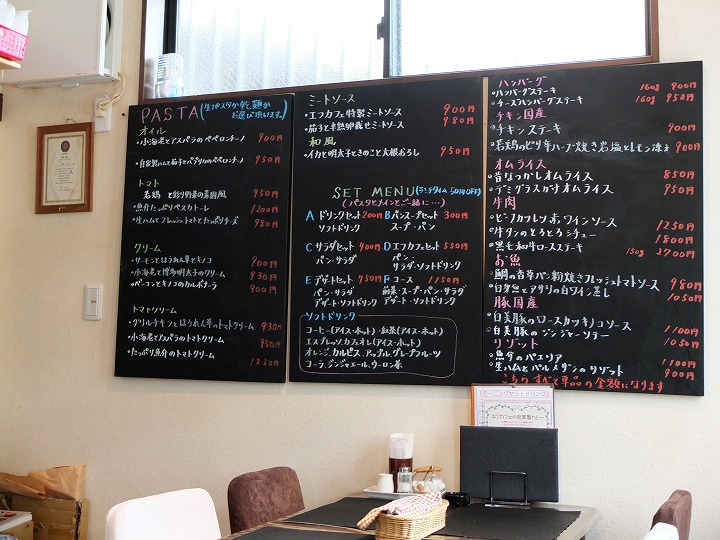 PASTA (生パスタか乾麺か
お選び頂けます。)
オイル
・小海老とアスパラのペペロンチーノ 900円
・自家製ハムと茄子とパプリカのペペロンチーノ 950円
トマト
・若鶏と彩り野菜の菜園風 950円
・魚介たっぷりペスカトーレ 1200円
・生ハムとフレッシュトマトとたっぷりチーズ 980円
クリーム
・サーモンとほうれん草とキノコ 900円
・小海老と博多明太子のクリーム 930円
・ベーコンとキノコのカルボナーラ 900円
トマトクリーム
・グリルチキンとほうれん草のトマトクリーム 930円
・小海老とアスパラのトマトクリーム 950円
・たっぷり魚介のトマトクリーム 1250円
ミートソース
・エフカフェ特製ミートソース 900円
・茄子と半熟卵載せミートソース 980円
和風
・イカと明太子ときのこと大根おろし 950円
SET MENU (ランチタイム 50円OFF)
(パスタとメインとご一緒に…)
A ドリンクセット 200円
ソフトドリンク
B パンスープセット 300円
スープ・パン
C サラダセット 400円
パン・サラダ
D エフカフェセット 550円
パン
サラダ・ソフトドリンク
E デザートセット 750円
パン・サラダ
デザート・ソフトドリンク
F コース 1150円
前菜・スープ・パン・サラダ
デザート・ソフトドリンク
ソフトドリンク
コーヒー(アイス・ホット)・紅茶(アイス・ホット)
エスプレッソ、カフェオレ(アイス・ホット)
オレンジ、カルピス、アップル、グレープフルーツ
コーラ、ジンジャエール、ウーロン茶
ハンバーグ
・ハンバーグステーキ 160g 900円
・チーズハンバーグステーキ 160g 950円
チキン国産
・チキンステーキ 900円
・若鶏のピリ辛ハーブ焼き岩塩とレモン添え 900円
オムライス
・昔なつかしオムライス 850円
・デミグラスカツオムライス 950円
牛肉
・ビーフカツレツ赤ワインソース 1250円
・牛タンのとろとろシチュー 1800円
・黒毛和牛ロースステーキ 150g 2700円
お魚
・鯛の香草パン粉焼きフレッシュトマトソース 980円
・白身魚とアサリの白ワイン蒸し 1050円
豚国産
・白美豚のロースカツキノコソース 1100円
・白美豚のジンジャーソテー 1050円
リゾット
・魚介のパエリア 1100円
・生ハムとパルメザンのリゾット 900円
こちらすべて単品の金額になります
モーニングセットドリンク